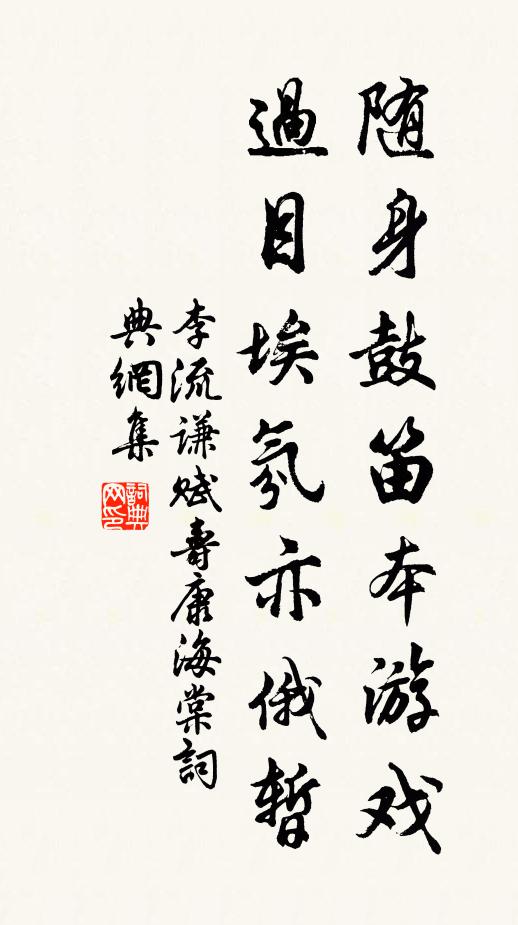 随身鼓笛本游戏
過目埃氛亦俄暫
李流谦赋壽康海棠詞
典網集
詞典网印